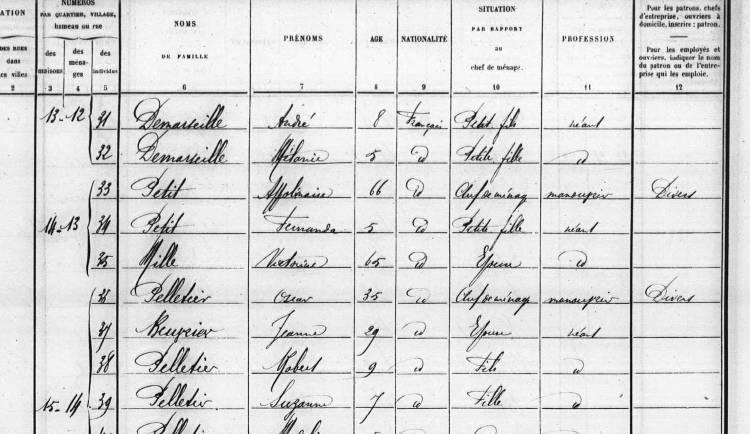 ATION NUMÉROS NOMS PRÉNOMS AGE NATIONALITÉ SITUATION PROFESSION Pour les patrons, chefs
PAR QUARTIER, VILLAGE, PAR RAPPORT d'entreprise, ouvriers à
hameau ou rue au domicile, inscrire : patron.
DES RUES des des des DE FAMILLE chef de ménage. Pour les employés et
dans maisons ména- individus ouvriers, indiquer le nom
es villes ges du patron ou de l'entre-
prise qui les emploie.
2 3 4 5 6 7 8 9 10 11 12
13 - 12 31 Demarseille André 8 Français Petit fils néant
32 Demarseille Mélanie 5 d Petite fille d
33 Petit Appolinaire 66 d Chef de ménag manouvrier Divers
14 - 13 34 Petit Fernanda 5 d Petite fille néant
35 Mille Victorine 65 d Epouse d
Pelletier Oscar 35 d Chef de ménage manouvrier Divers
37 Jeanne 29 d Epouse néant
38 Pelletier Robert 9 d Fils d
15 - 14 39 Pelletier Suzanne 7 d Fille d